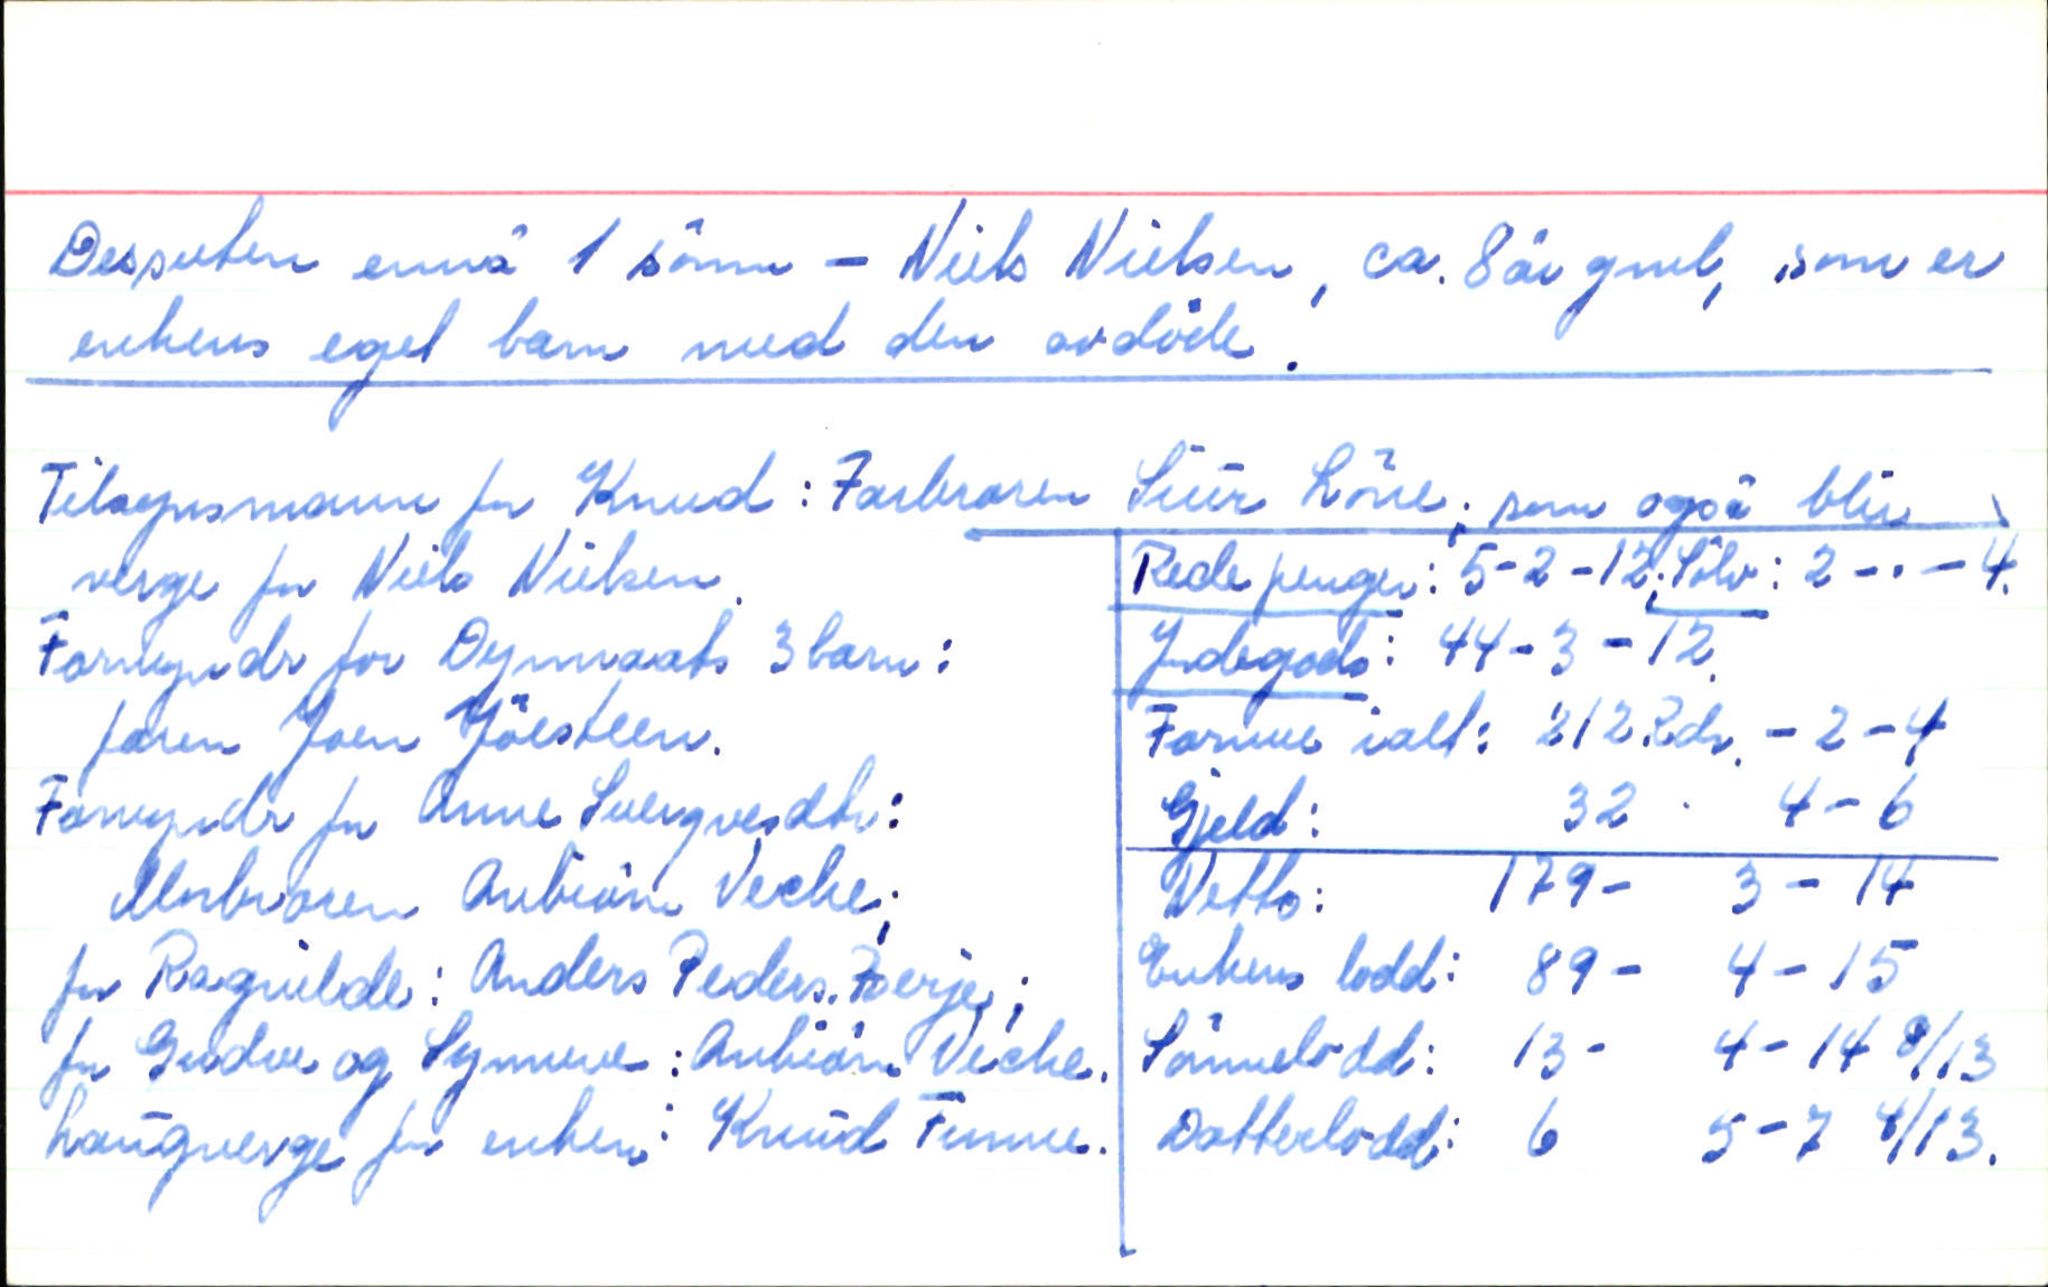 Dessuten ennå 1 sönn - Niels Nielsen, ca. 8 år gml, som er
enkens eget barn med den avdöde.
Tilsynsmann for Knud: Farbroren Siur Löne; som også blir
verge for Niels Nielsen.
Formyndr for Dynnaats 3 barn:
faren Joen Gjösteen.
Formyndr for Anne Svergvesdtr:
Morbroren Anbiörn Veche;
for Ragnilde: Anders Peders. Bberje;
for Gudve og Synneve: Anbiörn Veche.
Laugverge for enken: Knud Finne.
Rede penger: 5-2-12. Sölv: 2 - . - 4.
Jndegods: 44-3-12.
Formue ialt: 212 Rdr. - 2 - 4
Gjeld: 32 4 - 6
Netto: 179 - 3 - 14
Enkens lodd: 89 - 4 - 15
Sönnelodd: 13 - 4 - 14 8/13
Datterlodd: 6 5 - 7 4/13.